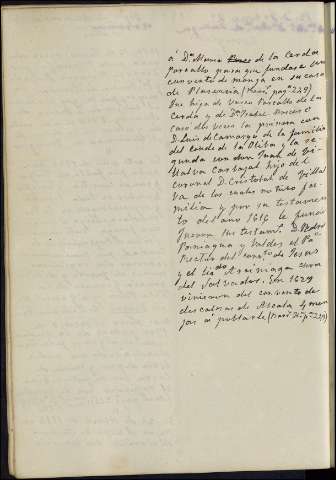 á D.ª Maria de la Cerda
Porcallo para que fundase un
convento de monjas en su casa
de Plasencia (  pag.ª 229)
Fue hija de Vasco Porcallo de la
Cerda y de D.ª Isabel
caso dos veces la primera con
D. Luis de Camargo de la familia
del Conde de la Oliva y la se-
gunda con don Juan de Vi-
llalva Carbajal hijo del
coronel D. Cristobal de Villal-
va de los cuales no tuvo fa-
milia y por su testamen-
to del año 1616 le
fueron sus testam.s D. Pedro
Paniagua y Valdes el P.e
Rector del  de Jesus
y el  cura
del Salvador. En 1629
vinieron del convento de
descalzas de Alcala 4 mon-
jas a poblarle ( pº 229)